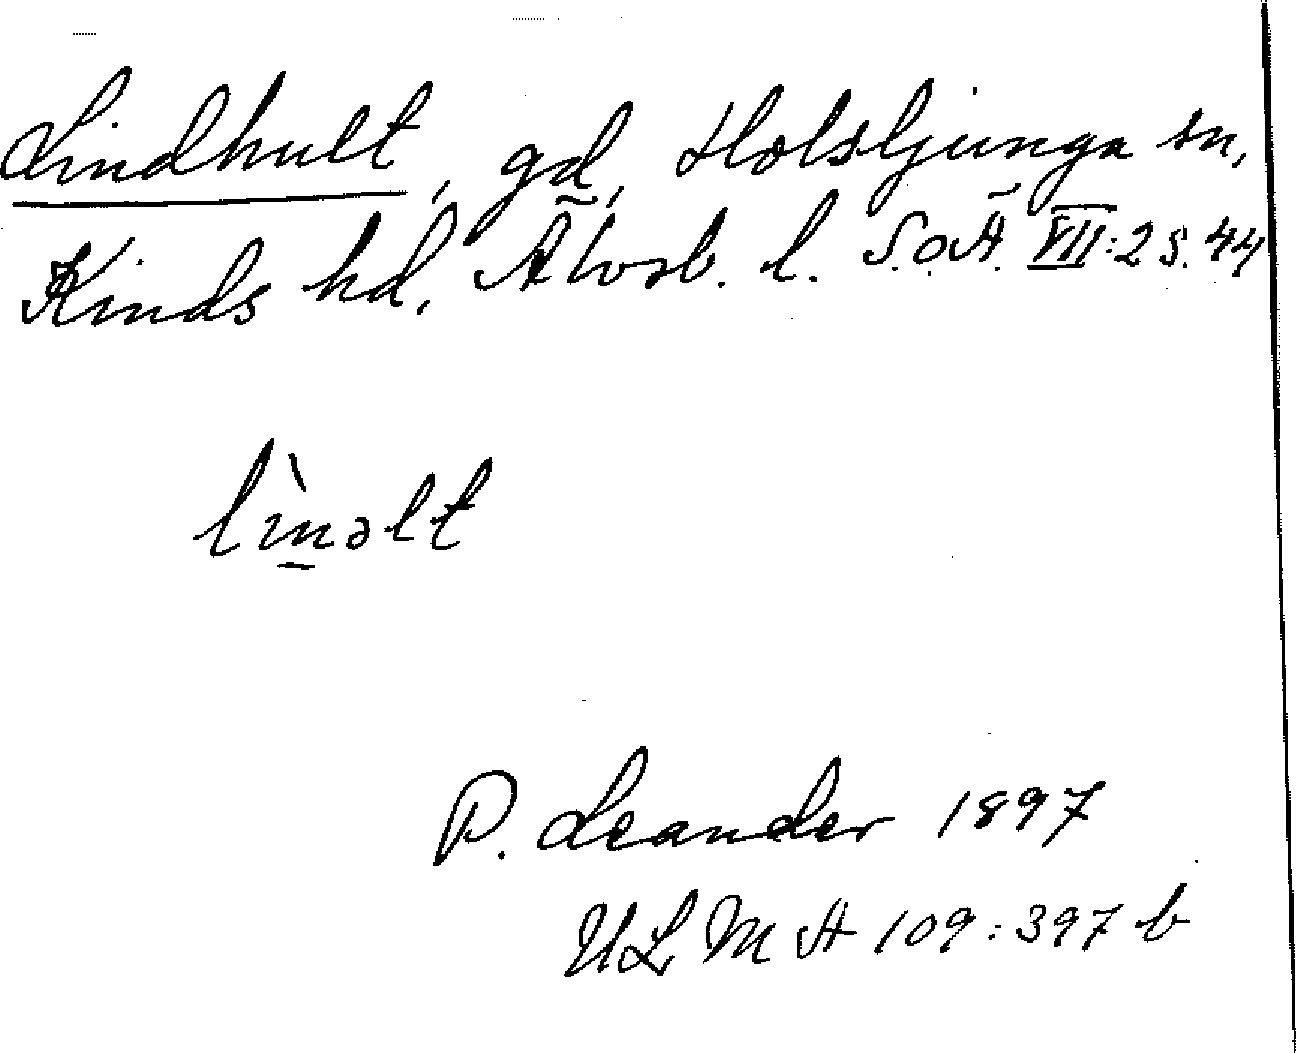 Lindhult, gd, Holsljunga sn,
Kinds hd, Älvsb. l. S.O.Ä. VII:2 s. 44
lìn̲əlt
P. Leander 1897
ULMA 109:397 b